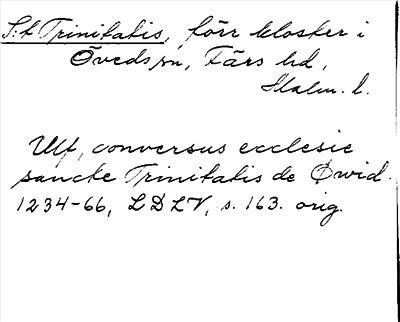 S:t Trinitatis, förr kloster i
Öveds sn, Färs hd,
Malm. l.
Ulf, conversus ecclesie
sancte Trinitatis de Øwid.
1234-66, LDLV, s. 163. orig.